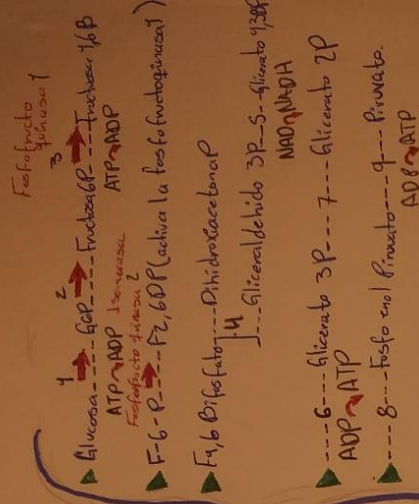 Fosfofructo
quinasa 1
1 2 3
Glucosa-----G6P-----Fructosa6P----Fructosa 1,6 B
ATP ADP Isomerasa ATP ADP
Fosfofructo quinasa 2
F-6-P----F2,6DP (activa la fosfofructoquinasa 1)
F1,6 Bifosfato----DihidroxiacetonaP
4
----Gliceraldehido 3P--5--Glicerato 1,3BP
NAD NADH
---6----Glicerato 3P---7----Glicerato 2P
ADP ATP
---8---Fosfo enol Piruvato---9---Piruvato.
ADP ATP